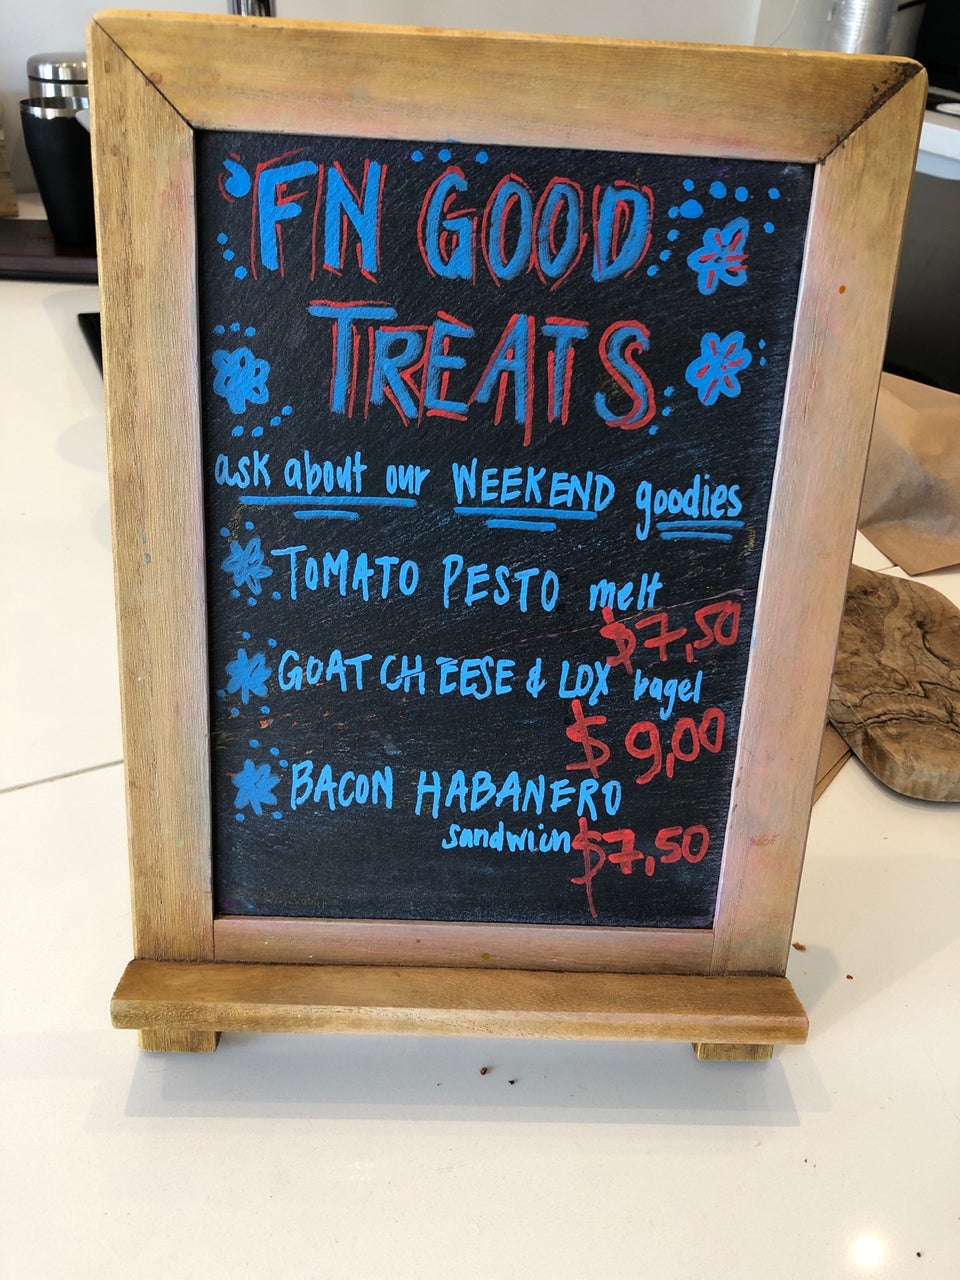 FN GOOD
TREATS
ask about our WEEKEND goodies
TOMATO PESTO melt
$7,50
GOAT CHEESE & LOX bagel
$9,00
BACON HABANERO
sandwich $7,50